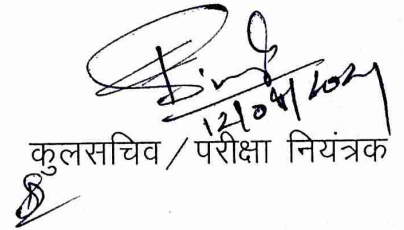 12/08/2024
कुलसचिव / परीक्षा नियंत्रक